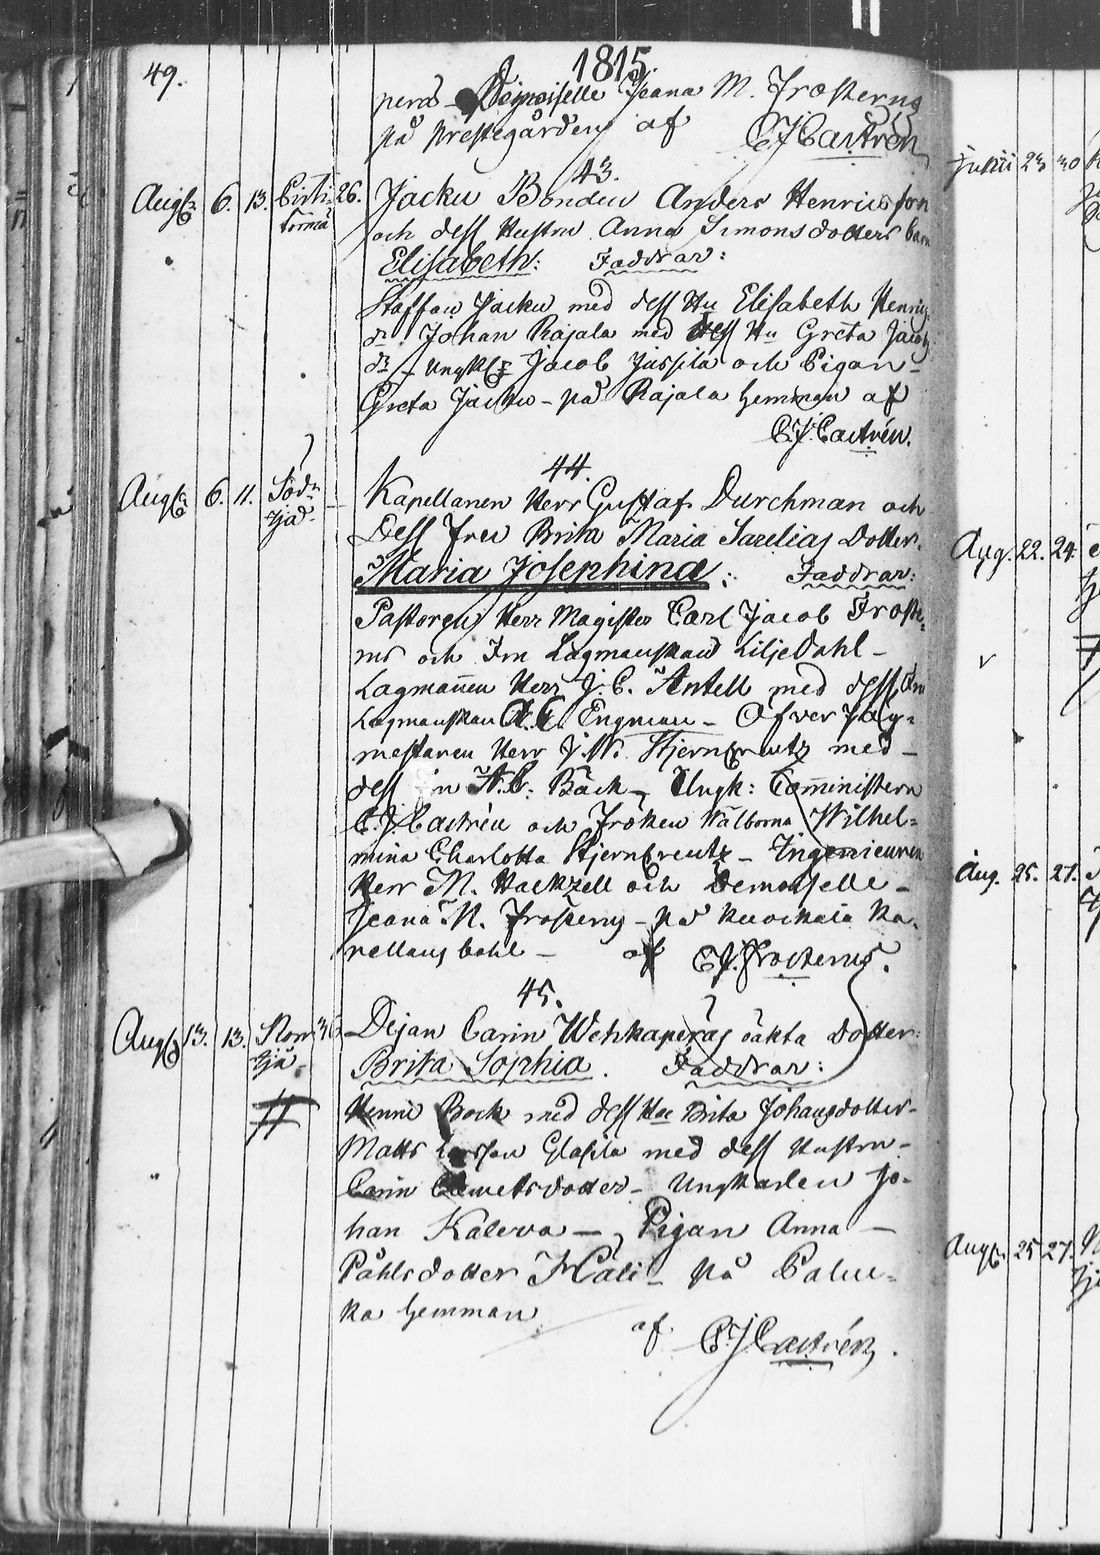 49.
1815.
Demoiselle Jeana M. Frosterus
på prestegården af C J Castrén
43.
Augs 6. 13. 26. Jacku Bonden Anders Henricsson
och dess Hustru Anna Simonsdotters barn
Elisabeth: Faddrar:
Staffan Jacku med dess Hu Elisabeth Henrics
dr. Johan Rajala med dess Hu Greta Jacobs
dr - Ungk Jacob Jussila och Pigan -
Greta Jacku - på Rajala hemman af
C.J. Castrén.
44.
Augs 6. 11. Kapellanen Herr Gustaf Durchman och
Dess Fru Brita Maria Dotter.
Maria Josephina: Faddrar:
Herr Magister Carl Jacob Froste
rus och Fru Lagmanskan LiljeDahl -
Lagmannen Herr J. C. Antell med dess
Lagmanskan Engman - Öfver Jäg=
mestaren Herr J. W. Stjerncreutz med -
dess Bäck - Ungk: Comministern
C. J. Castrén och Fröken Wälborna Wilhel=
mina Charlotta Stjerncreutz - Ingenieuren
Herr M. Hackzell och Demoiselle -
Jeana M. Frosterus - på
pellans bohl - af C J. Frosterus.
45.
Augs 13. 13. 36 Dejan Carin oäkta Dotter:
Brita Sophia. Faddrar:
Henric Bock med dess Hu Brita Johansdotter -
Matts med dess Hustru -
Carin - Ungkarlen Jo-
han Kaleva - Pigan Anna -
Påhlsdotter - på
ka hemman
af C J Castrén.
Junii 23 30
Aug. 22. 24.
Aug. 25. 27.
Augs 25 27.